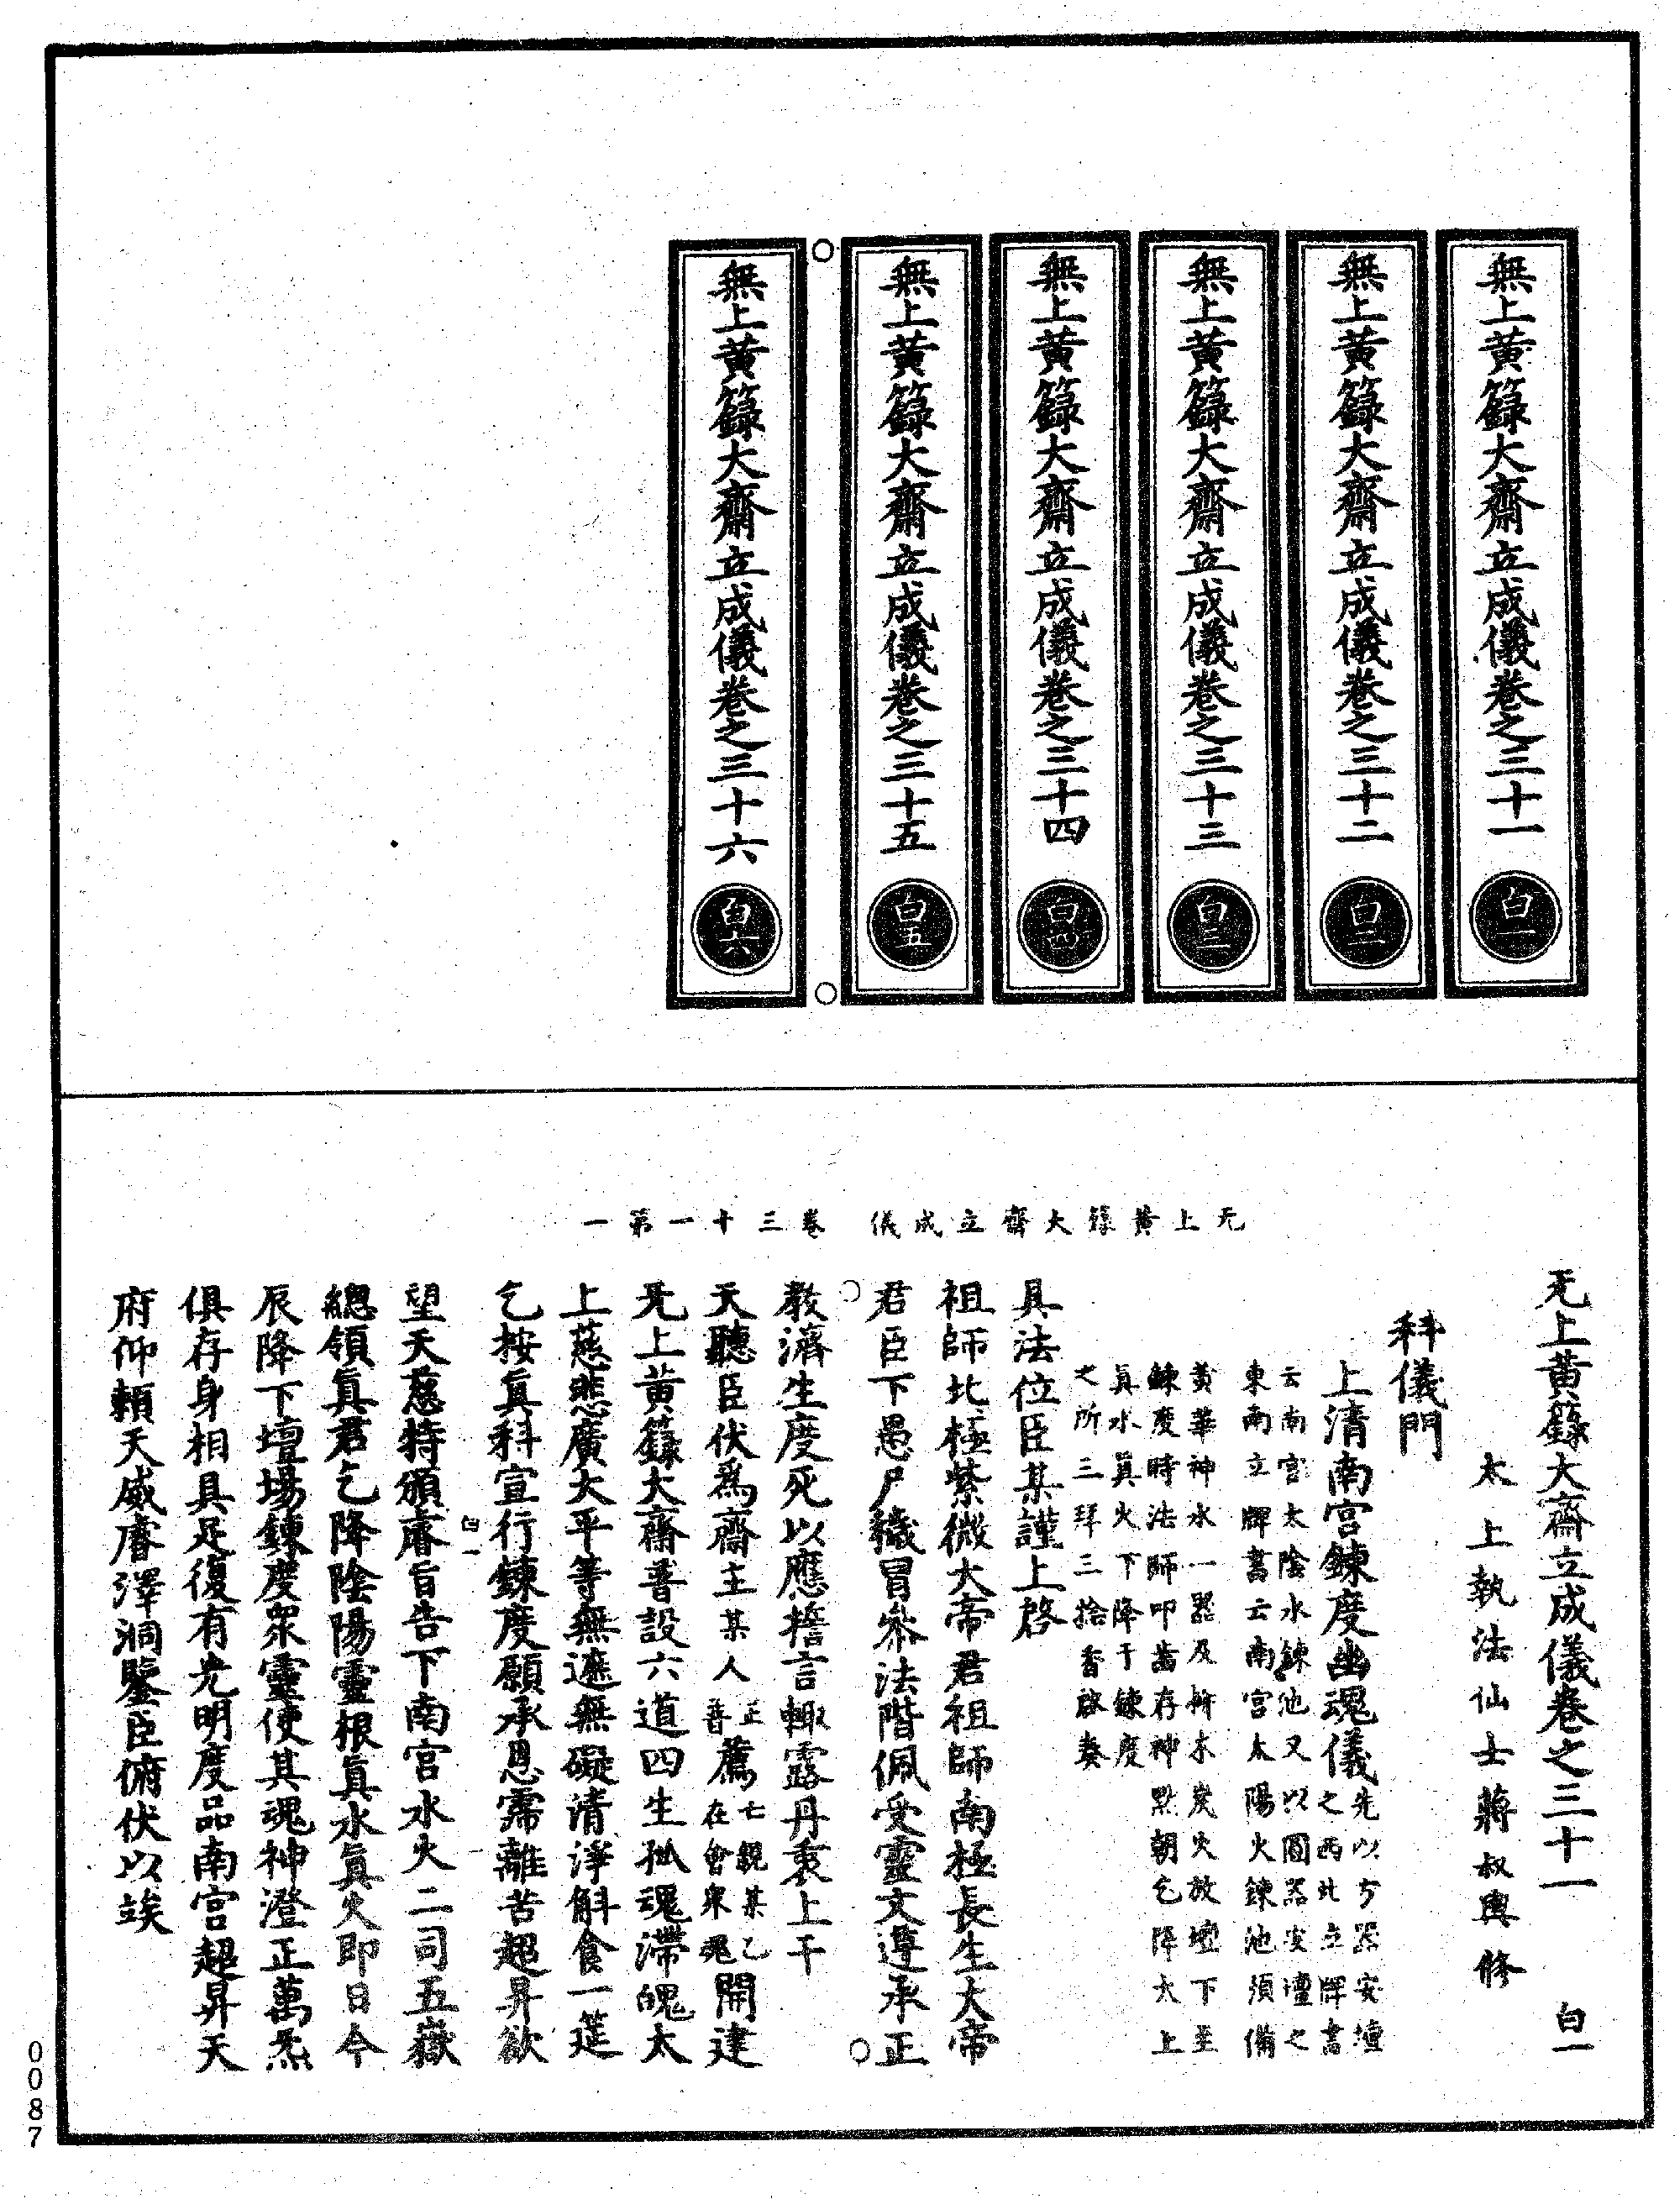 無上黃籙大齋立成儀卷之三十一 白一
無上黃籙大齋立成儀卷之三十二 白二
無上黃籙大齋立成儀卷之三十三 白三
無上黃籙大齋立成儀卷之三十四 白四
無上黃籙大齋立成儀卷之三十五 白五
無上黃籙大齋立成儀卷之三十六 白六
无上黃籙大齋立成儀 卷三十一第一
无上黃籙大齋立成儀卷之三十一 白一
太上執法仙士蔣叔輿修
科儀門
上清南宮鍊度幽魂儀先以方器安壇
之西北立牌書
云南宮太陰水鍊池又以圓器安壇之
東南立牌書云南宮太陽火鍊池須備
黃華神水一器及桁木炭火放壇下至
鍊度時法師叩齒存神默朝乞降太上
真水真火下降于鍊度
之所三拜三捻香啓奏
具法位臣某謹上啓
祖師北極紫微大帝君祖師南極長生大帝
君臣下愚尸穢冒叅法階佩受靈文遵承正
教濟生度死以應擔言輙露丹衷上干
天聽臣伏爲齋主某人正薦亡親某乙
普薦在會衆魂開建
无上黃籙大齋普設六道四生孤魂滯魄太
上慈悲廣大平等無遮無礙清淨斛食一筵
乞按眞科宣行鍊度願承恩霈離苦超昇欲
白一
望天慈特頒睿旨告下南宮水火二司五嶽
總領眞君乞降陰陽靈根眞水眞火即日今
辰降下壇場鍊度衆靈使其魂神澄正萬炁
俱存身相具足復有光明度品南宮超昇天
府仰賴天威睿澤洞鑒臣俯伏以竢
0087